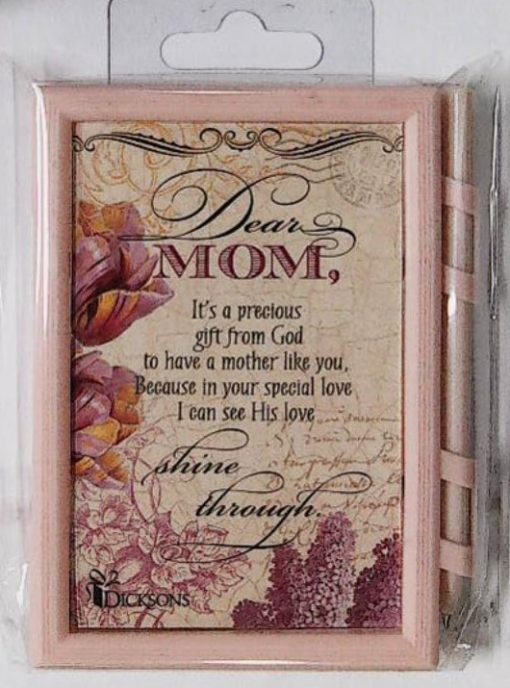 Dear
MOM,
It's a precious
gift from God
to have a mother like you,
Because in your special love
I can see His love
shine
through.
DICKSONS